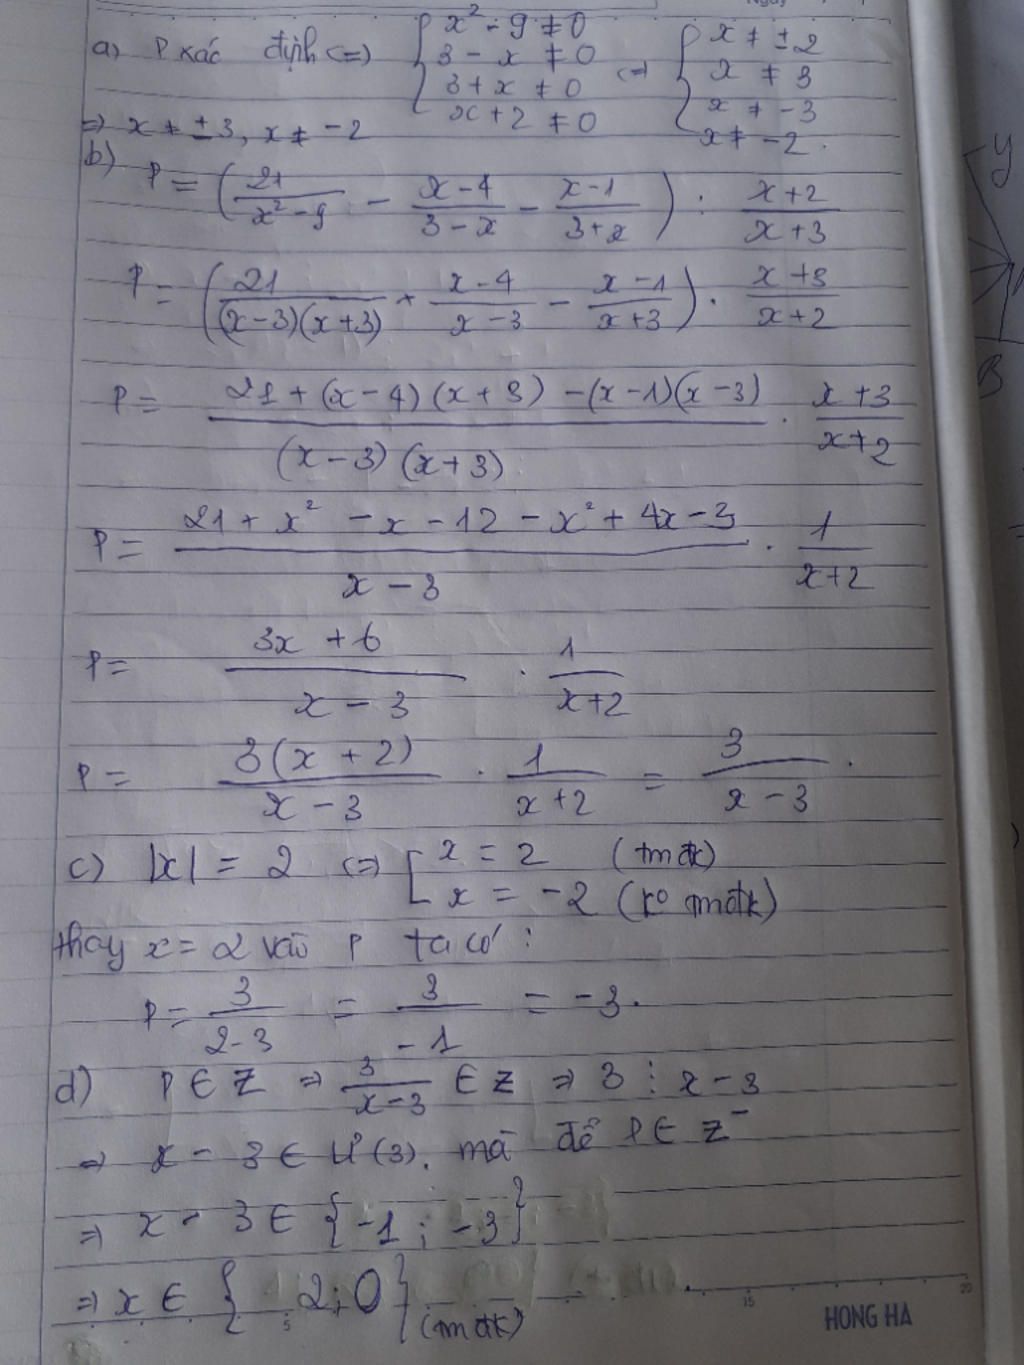 a) P xác định <=> { x² - 9 ≠ 0 ; 3 - x ≠ 0 ; 3 + x ≠ 0 ; x + 2 ≠ 0 <=> { x ≠ ± 2 ; x ≠ 3 ; x ≠ -3 ; x ≠ -2.
=> x ≠ ± 3, x ≠ -2
b) P = (21/(x² - 9) - (x - 4)/(3 - x) - (x - 1)/(3 + x)) : (x + 2)/(x + 3)
P = (21/((x - 3)(x + 3)) + (x - 4)/(x - 3) - (x - 1)/(x + 3)) . (x + 3)/(x + 2)
P = (21 + (x - 4)(x + 3) - (x - 1)(x - 3))/((x - 3)(x + 3)) . (x + 3)/(x + 2)
P = (21 + x² - x - 12 - x² + 4x - 3)/(x - 3) . 1/(x + 2)
P = (3x + 6)/(x - 3) . 1/(x + 2)
P = 3(x + 2)/(x - 3) . 1/(x + 2) = 3/(x - 3) .
c) |x| = 2 <=> [ x = 2 (tmđk) ; x = -2 (ko tmđk)
thay x = 2 vào P ta có :
P = 3/(2 - 3) = 3/(-1) = -3.
d) P ∈ Z => 3/(x - 3) ∈ Z => 3 ⋮ x - 3
=> x - 3 ∈ Ư(3). mà để P ∈ Z⁻
=> x - 3 ∈ {-1 ; -3}
=> x ∈ { 2 ; 0 } (tmđk)
5 15 20
HONG HA
y
B